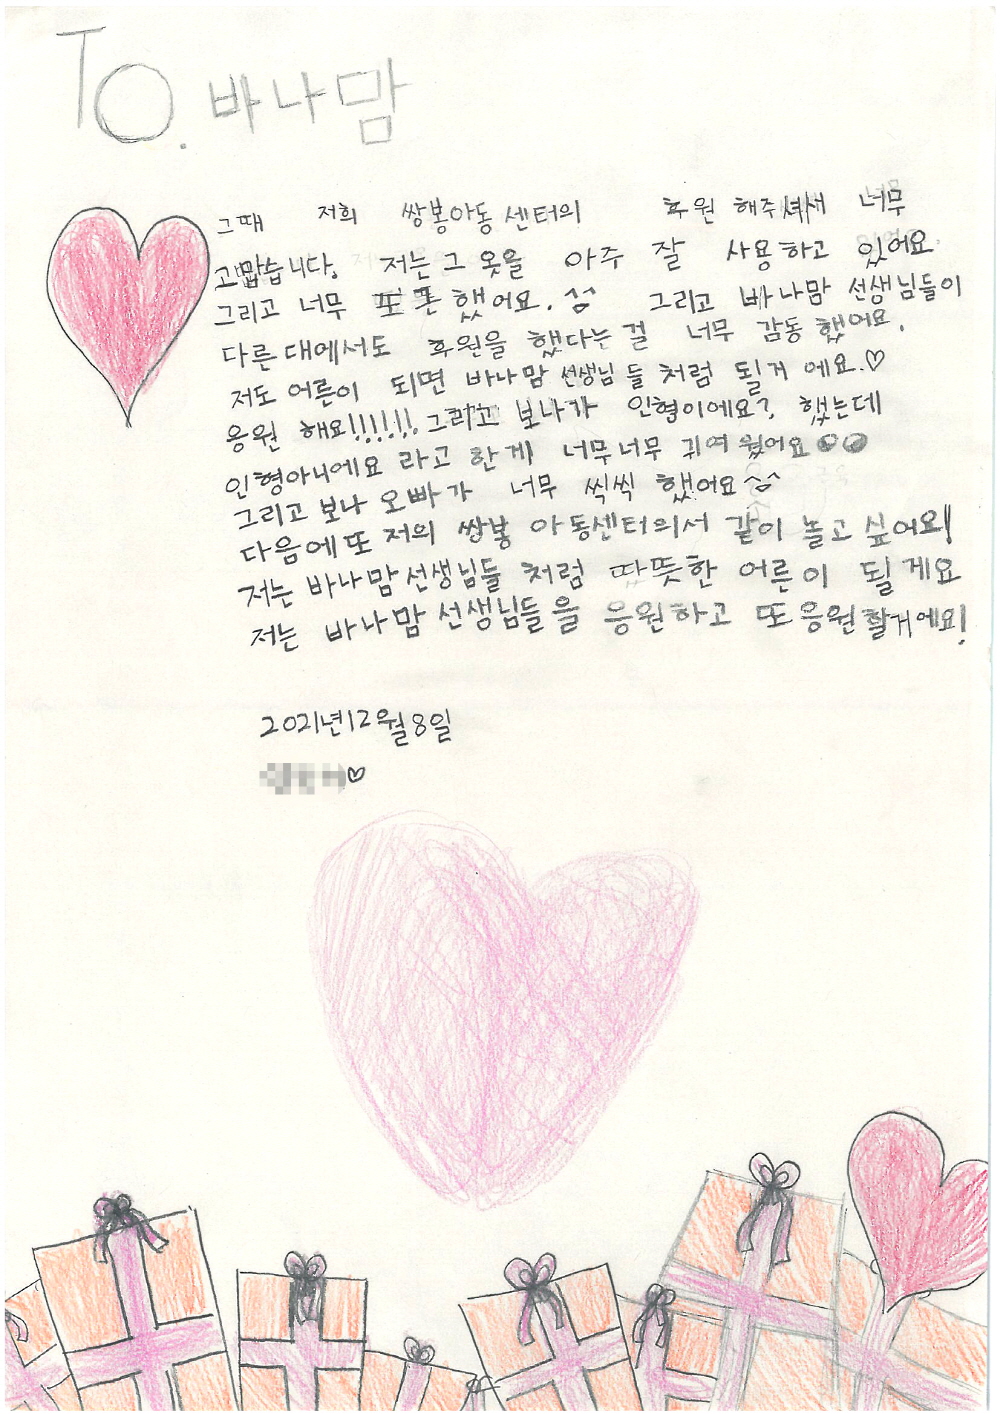 TO. 바나맘
그때 저희 쌍봉아동센터의 후원 해주셔서 너무
고맙습니다. 저는 그 옷을 아주 잘 사용하고 있어요
그리고 너무 또똔했어요. 그리고 바나맘 선생님들이
다른대에서도 후원을 했다는걸 너무 감동했어요.
저도 어른이 되면 바나맘 선생님들 처럼 될거에요.♡
응원 해요!!!!!! 그리고 보나가 인형이에요? 했는데
인형아니에요 라고 한게 너무너무 귀여웠어요
그리고 보나 오빠가 너무 씩씩 했어요^^
다음에또 저의 쌍봉 아동센터의서 같이 놀고싶어요!
저는 바나맘선생님들 처럼 따뜻한 어른이 될게요
저는 바나맘 선생님들을 응원하고 또응원할거에요!
2021년12월8일
♡